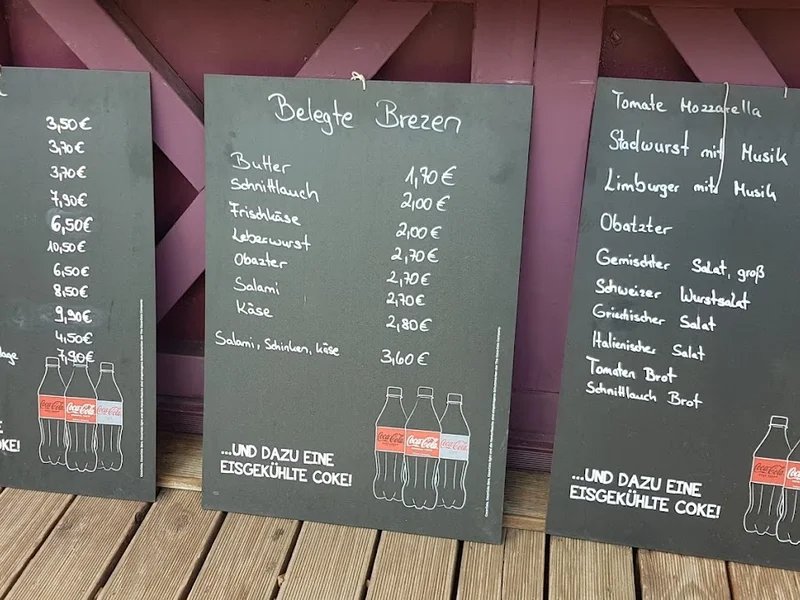 3,50€
3,70€
3,70€
7,90€
6,50€
10,50€
6,50€
8,50€
9,90€
4,50€
7,90€
Coca-Cola Coca-Cola Coca-Cola
OKE!
Belegte Brezen
Butter 1,70€
Schnittlauch 2,00€
Frischkäse 2,00€
Leberwurst 2,70€
Obazter 2,70€
Salami 2,70€
Käse 2,80€
Salami, Schinken, Käse 3,60€
Coca-Cola Coca-Cola Coca-Cola
...UND DAZU EINE
EISGEKÜHLTE COKE!
Tomate Mozzarella
Stadwurst mit Musik
Limburger mit Musik
Obatzter
Gemischter Salat, groß
Schweizer Wurstsalat
Griechischer Salat
Italienischer Salat
Tomaten Brot
Schnittlauch Brot
Coca-Cola
...UND DAZU EINE
EISGEKÜHLTE COKE!